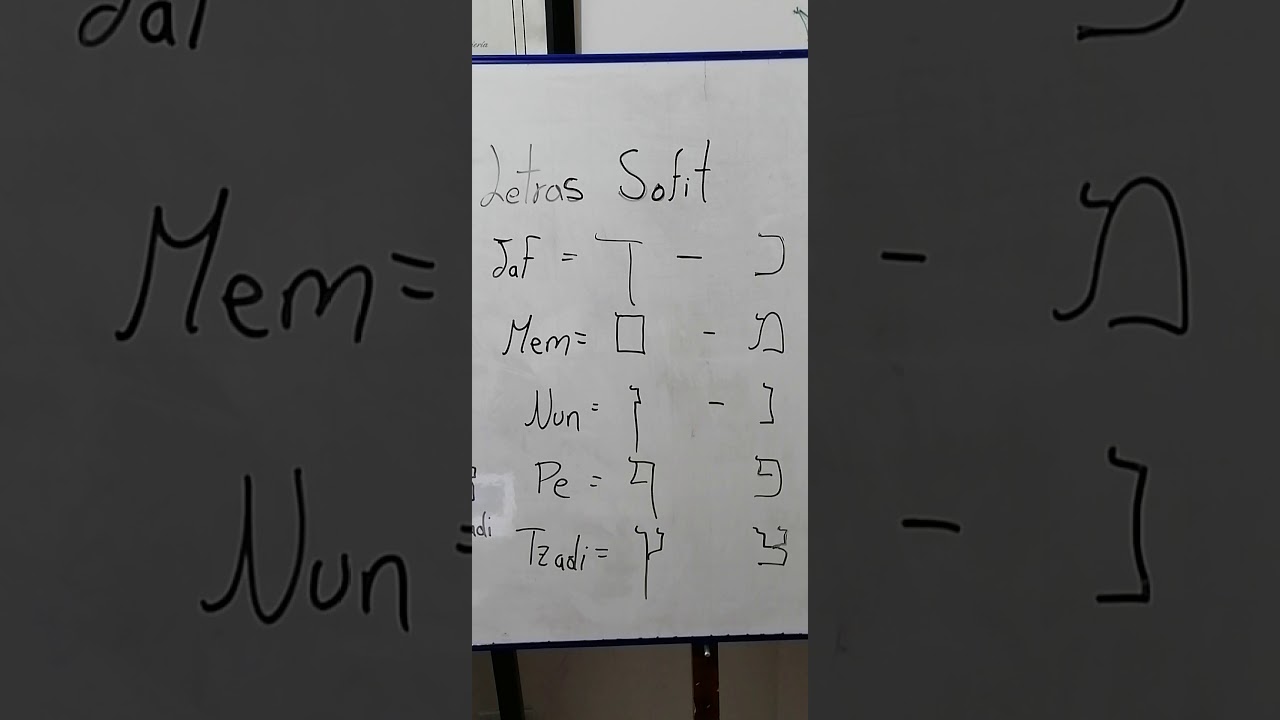 Letras Sofit
Jaf = ך - כ
Mem = ם - מ
Nun = ן - נ
Pe = ף פ
Tzadi = ץ צ